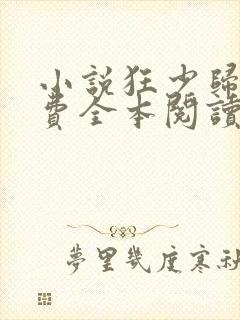 小説狂少歸
費全本閱讀
夢里幾度寒秋